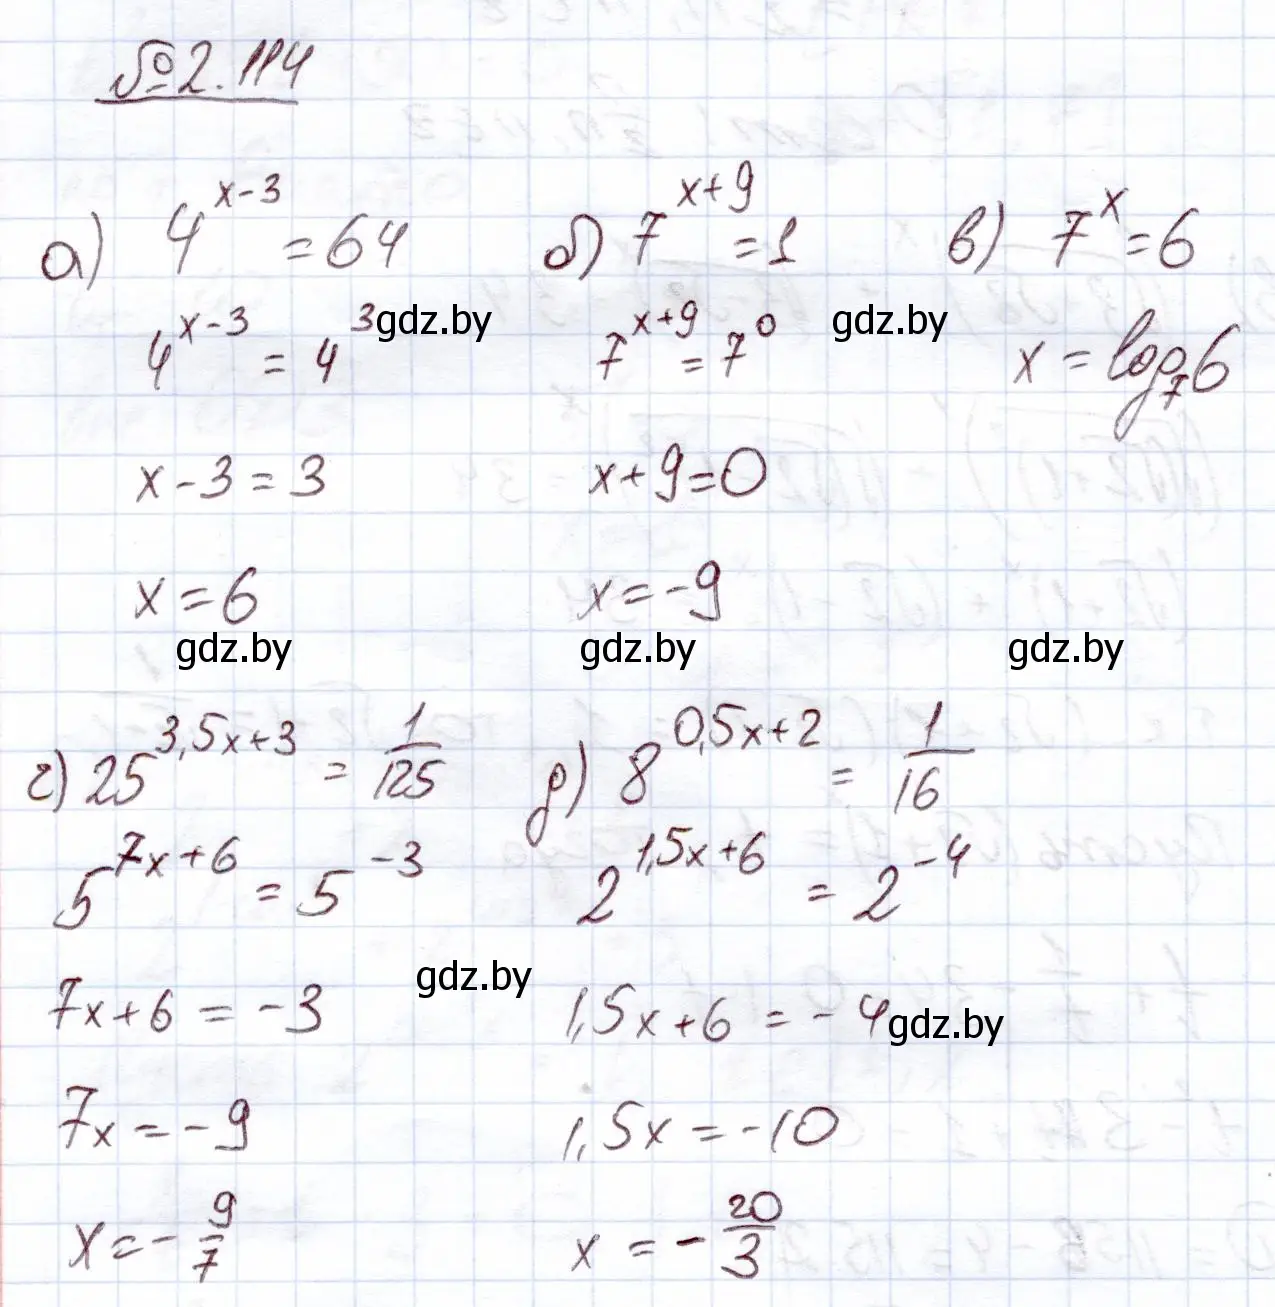 №2.114
а) 4^(x-3) = 64
4^(x-3) = 4^3
x-3 = 3
x = 6
б) 7^(x+9) = 1
7^(x+9) = 7^0
x+9=0
x=-9
в) 7^x = 6
x = log_7 6
г) 25^(3,5x+3) = 1/125
5^(7x+6) = 5^(-3)
7x+6 = -3
7x = -9
x = -9/7
д) 8^(0,5x+2) = 1/16
2^(1,5x+6) = 2^(-4)
1,5x+6 = -4
1,5x = -10
x = -20/3
gdz.by
gdz.by
gdz.by
gdz.by
gdz.by
gdz.by
gdz.by